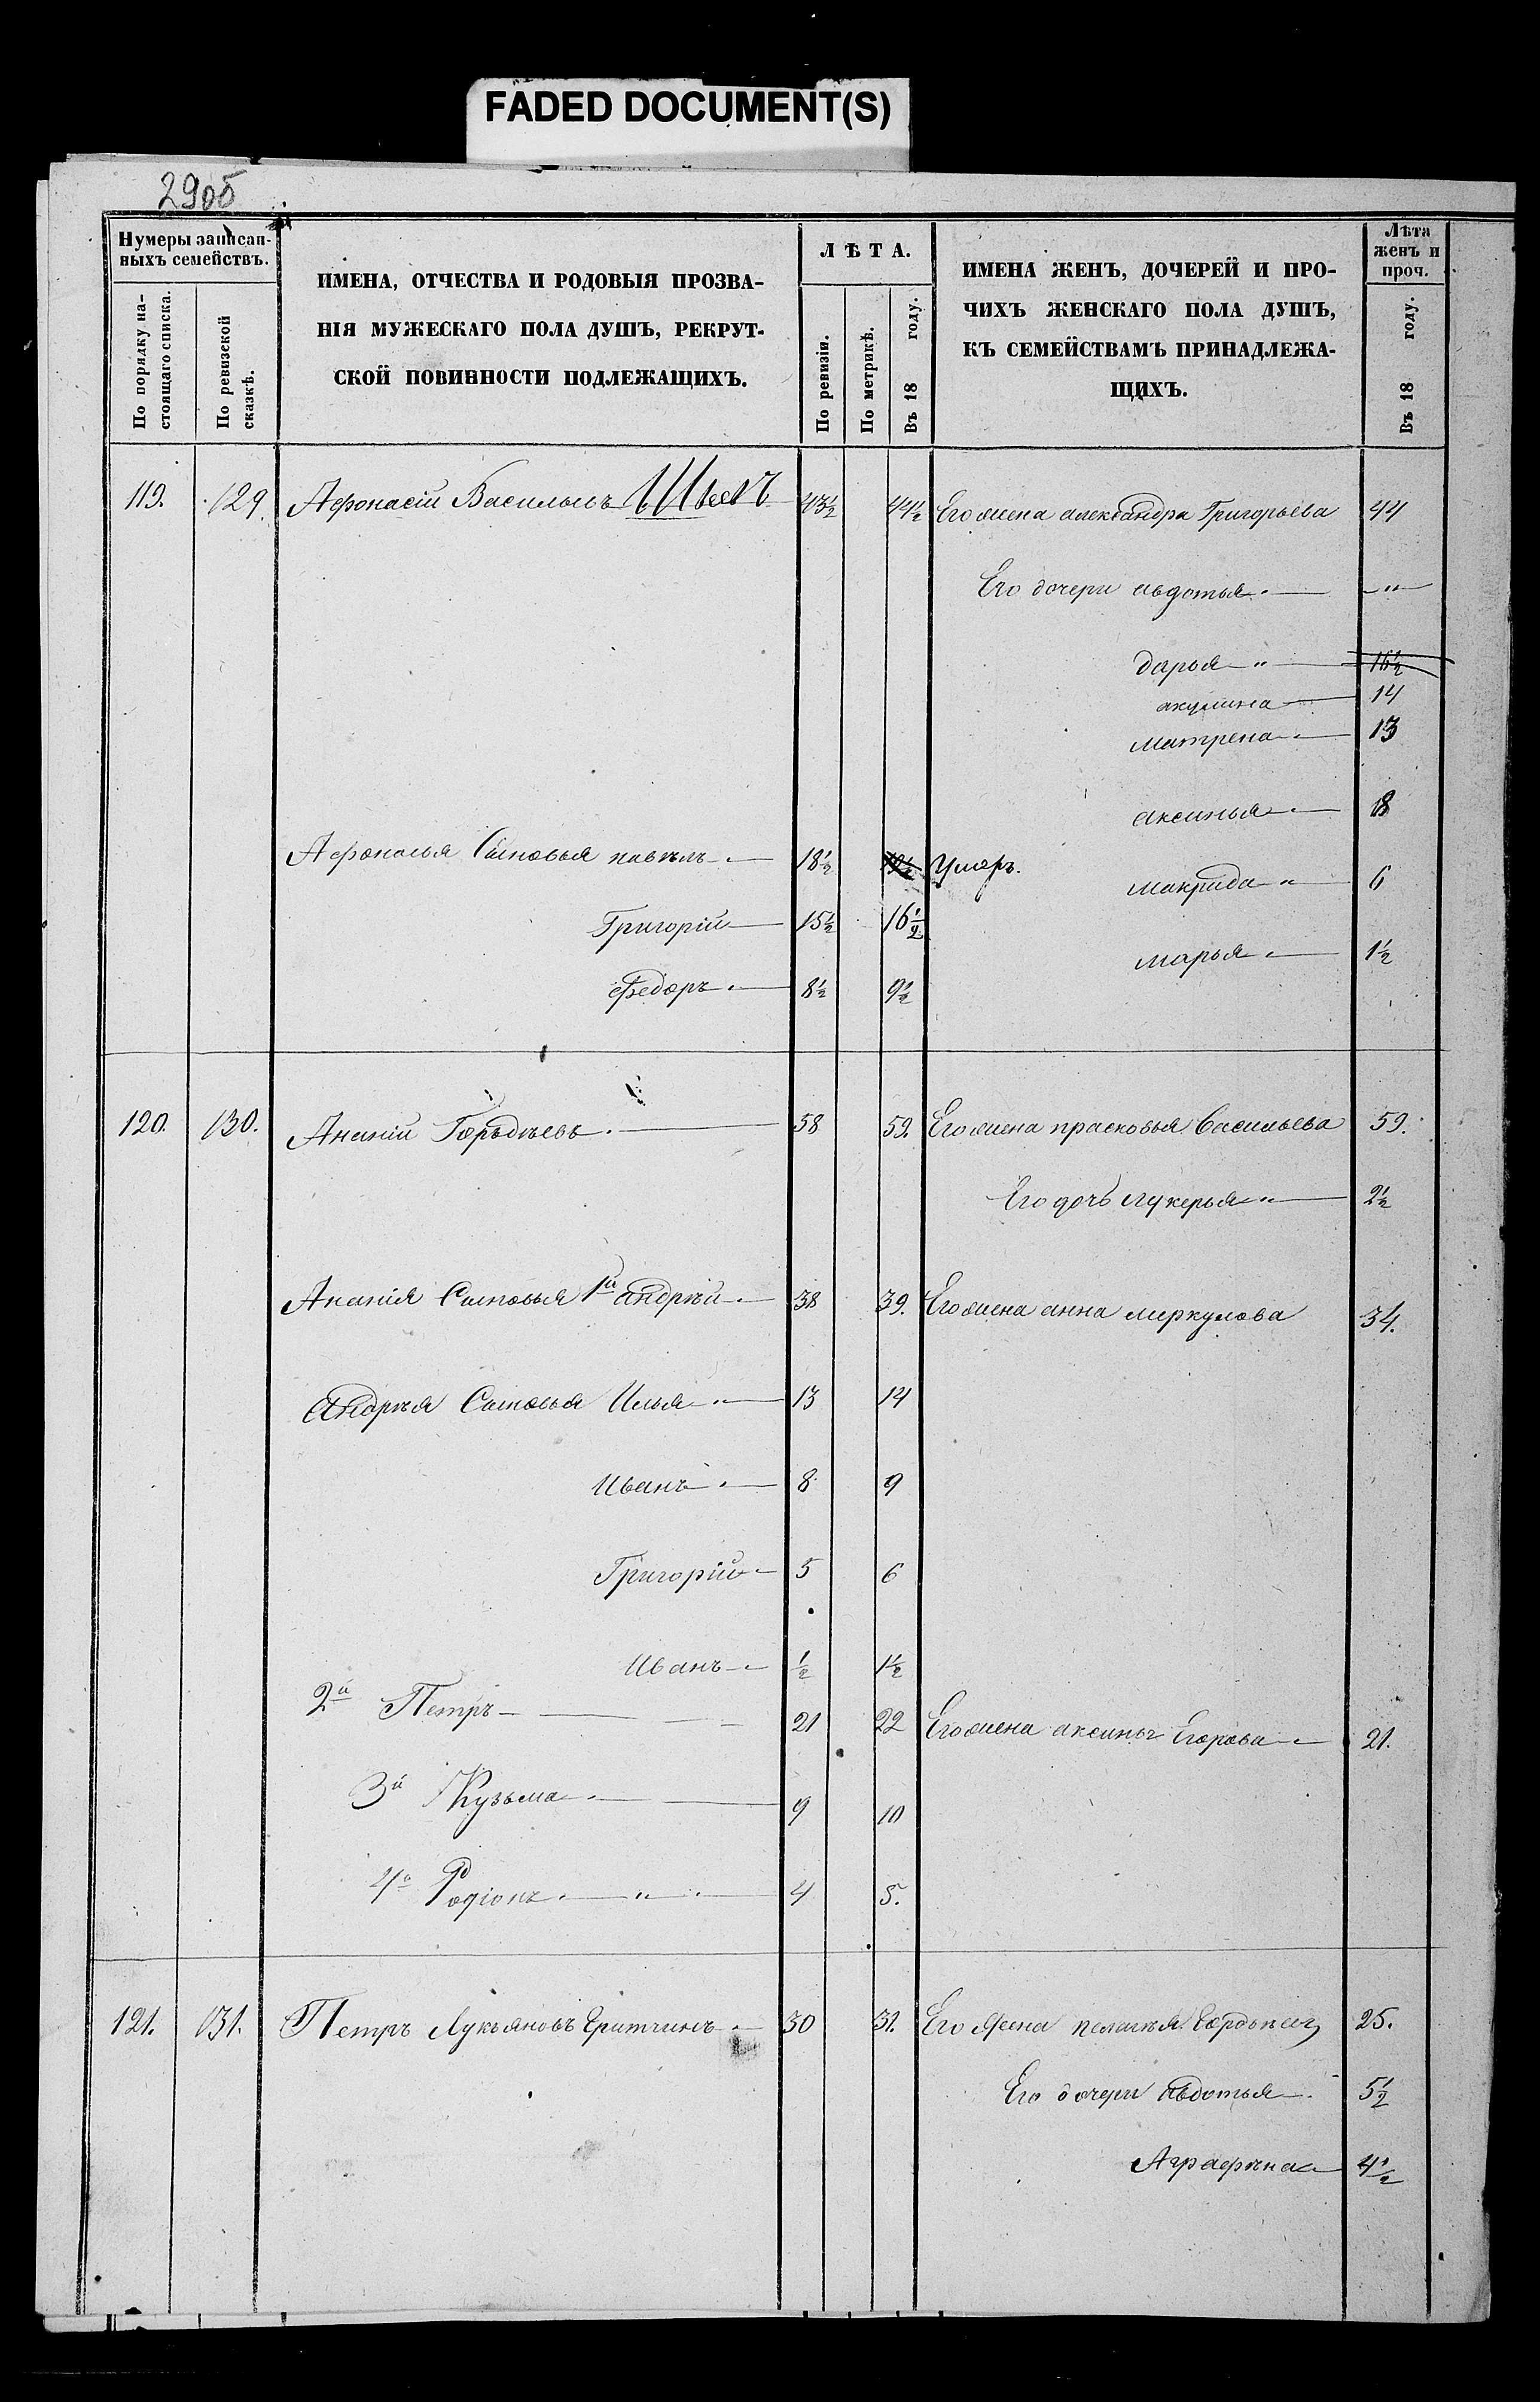 FADED DOCUMENT(S)
290об
Нумеры записан-
ныхъ семействъ.
По порядку на-
стоящаго списка.
По ревизской
сказкѣ.
ИМЕНА, ОТЧЕСТВА И РОДОВЫЯ ПРОЗВА-
НІЯ МУЖЕСКАГО ПОЛА ДУШЪ, РЕКРУТ-
СКОЙ ПОВИННОСТИ ПОДЛЕЖАЩИХЪ.
ЛѢТА.
По ревизіи.
По метрикѣ.
Въ 18 году.
ИМЕНА ЖЕНЪ, ДОЧЕРЕЙ И ПРО-
ЧИХЪ ЖЕНСКАГО ПОЛА ДУШЪ,
КЪ СЕМЕЙСТВАМЪ ПРИНАДЛЕЖА-
ЩИХЪ.
Лѣта
женъ и
проч.
Въ 18 году.
119. 129. Афонасій Васильевъ 43½ 44½ Его жена александра Григорьева 44
Его дочери авдотья "
дарья " 16½
акулина 14
матрена 13
аксинья 18
Афонасья Сыновья павелъ 18½ 19½ Умеръ.
макрида " 6
Григорій 15½ 16½
марья 1½
Федоръ 8½ 9½
120. 130. Ананій Гордѣевъ 58 59. Его жена прасковья Васильева 59.
Его дочь лукерья 2½
Ананія Сыновья 1й андрѣй 38 39. Его жена анна меркулова 34.
Андрѣя Сыновья Илья 13 14
Иванъ 8 9
Григорій 5 6
Иванъ ½ 1½
2й Петръ 21 22 Его жена аксинья Егорова 21.
3й Кузьма 9 10
4й Родіонъ " 4 5.
121. 131. Петръ Лукьяновъ 30 31. Его жена пелагѣя Гордѣева 25.
Его дочери Авдотья 5½
Аграфена 4½